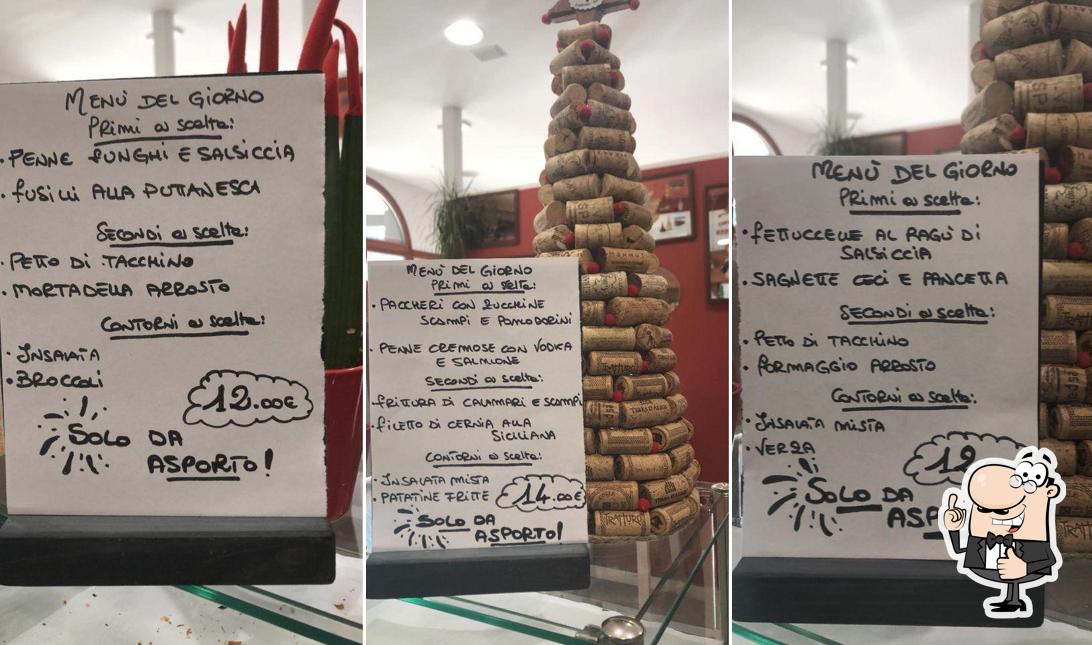 MENÙ DEL GIORNO
PRIMI a scelta:
• PENNE FUNGHI E SALSICCIA
• FUSILLI ALLA PUTTANESCA
SECONDI a scelta:
• PETTO DI TACCHINO
• MORTADELLA ARROSTO
CONTORNI a scelta:
• INSALATA
• BROCCOLI
12.00€
SOLO DA
ASPORTO!
MENÙ DEL GIORNO
PRIMI a scelta:
• PACCHERI CON ZUCCHINE
SCAMPI E POMODORINI
• PENNE CREMOSE CON VODKA
E SALMONE
SECONDI a scelta:
• FRITTURA DI CALAMARI E SCAMPI
• FILETTO DI CERNIA ALLA
SICILIANA
CONTORNI a scelta:
• INSALATA MISTA
• PATATINE FRITTE
14.00€
SOLO DA
ASPORTO!
MENÙ DEL GIORNO
PRIMI a scelta:
• FETTUCCELLE AL RAGÙ DI
SALSICCIA
• SAGNETTE CECI E PANCETTA
SECONDI a scelta:
• PETTO DI TACCHINO
• FORMAGGIO ARROSTO
CONTORNI a scelta:
• INSALATA MISTA
• VERZA
12
SOLO DA
ASP
STRATTURO